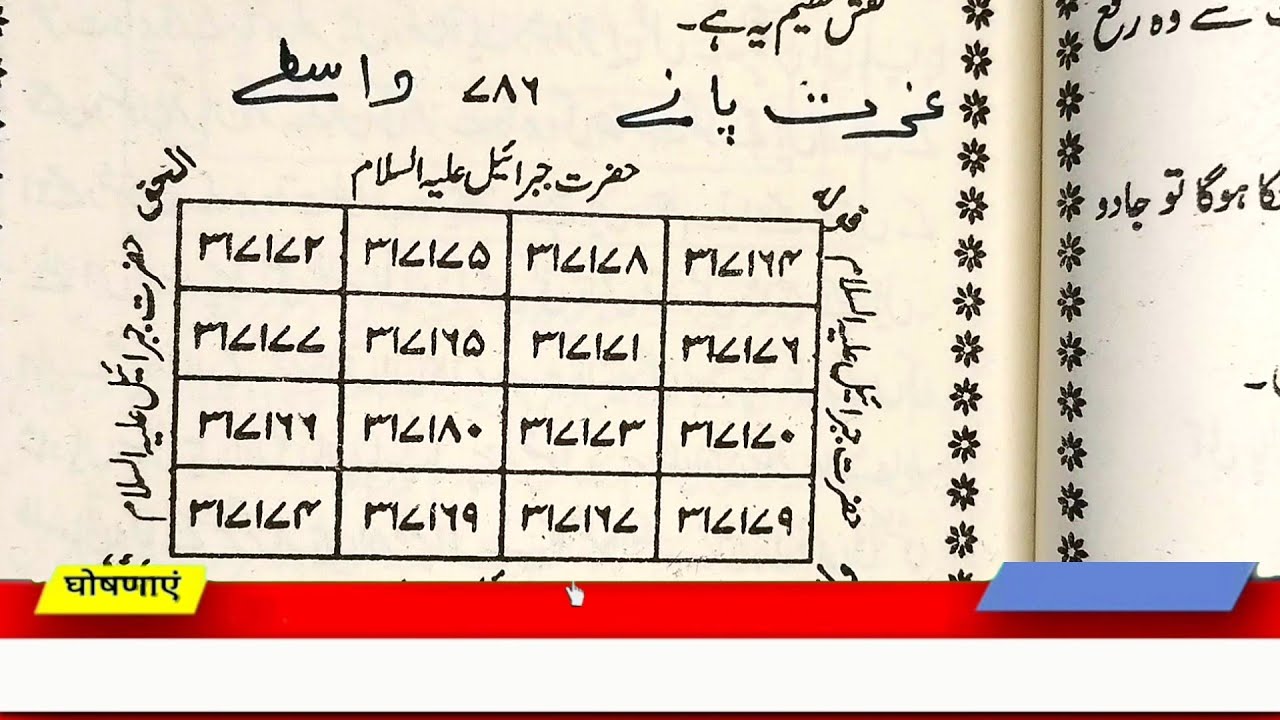 نقش عظیم یہ ہے۔
عزت پانے ۷۸۶ واسطے
حضرت جبرائیل علیہ السلام
قولہ
۳۱۷۱۶۴ ۳۱۷۱۷۸ ۳۱۷۱۷۵ ۳۱۷۱۷۲
۳۱۷۱۷۶ ۳۱۷۱۷۱ ۳۱۷۱۶۵ ۳۱۷۱۷۷
۳۱۷۱۷۰ ۳۱۷۱۷۳ ۳۱۷۱۸۰ ۳۱۷۱۶۶
۳۱۷۱۷۹ ۳۱۷۱۶۷ ۳۱۷۱۶۹ ۳۱۷۱۷۴
حضرت جبرائیل علیہ السلام
حضرت جبرائیل علیہ السلام
سے وہ رفع
کا ہوگا تو جادو
घोषणाएं